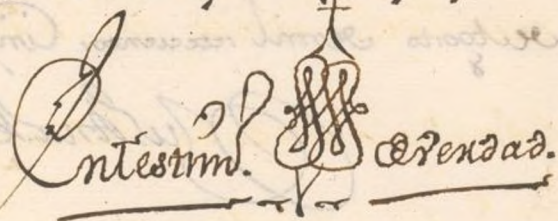 En testim.º de verdad.